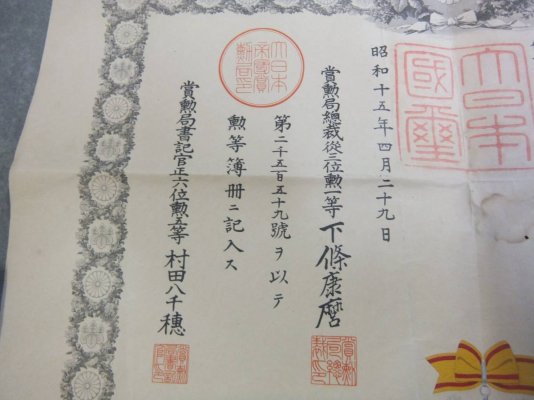 大日本
國璽
昭和十五年四月二十九日
賞勳局總裁從三位勳一等 下條康麿
賞勳局總裁印
第二千五百五十九號ヲ以テ
大日本
帝國賞
勳局印
勳等簿冊ニ記入ス
賞勳局書記官正六位勳五等 村田八千穗